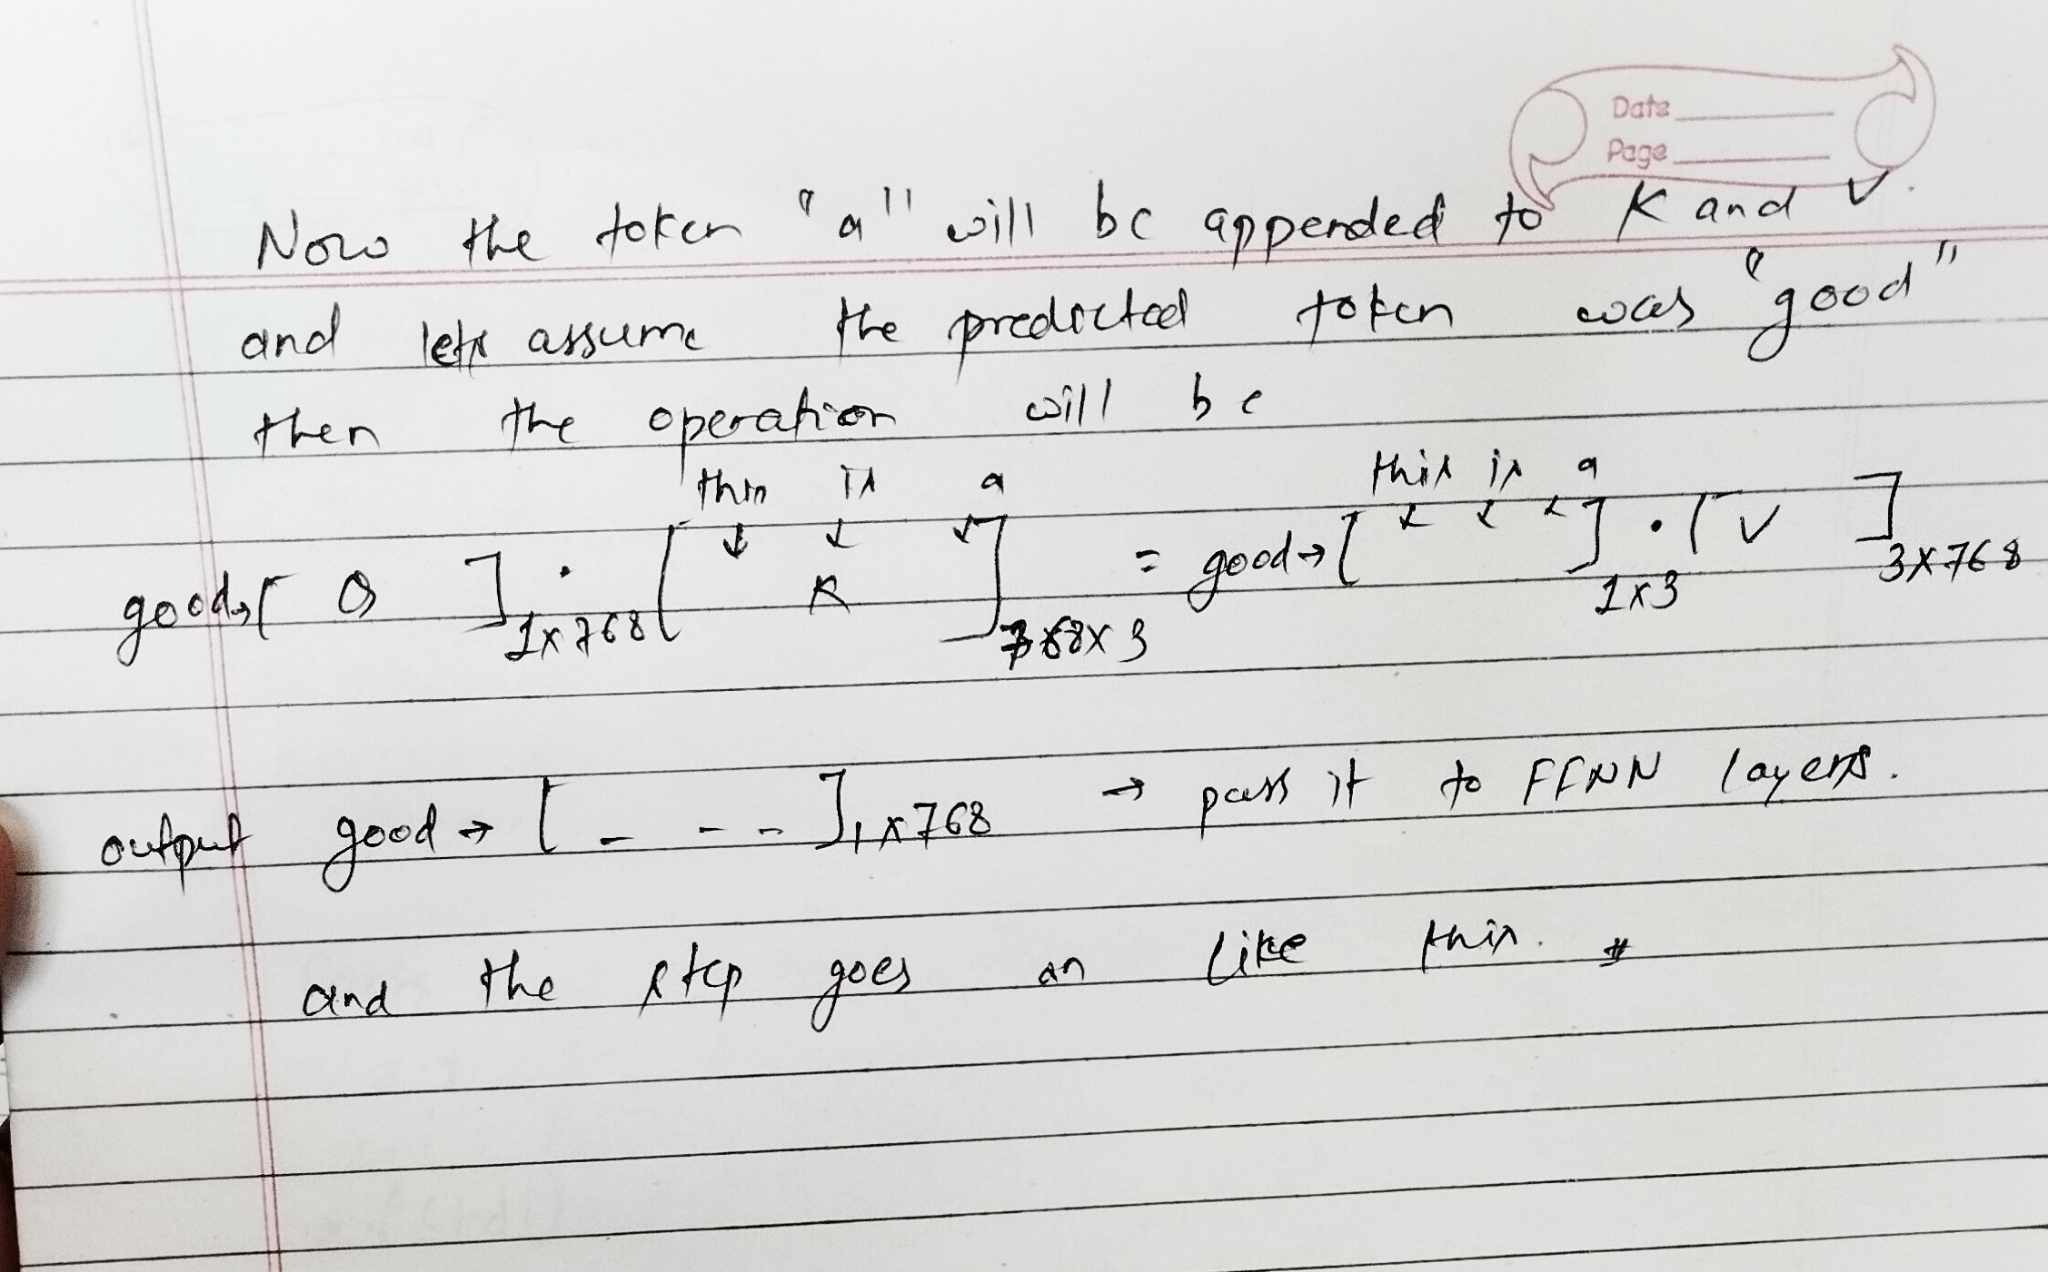 Date
Page
Now the token "a" will be appended to K and V.
and lets assume the predicted token was "good"
then the operation will be
this is a this is a
good→[ Q ]1x768 . [ K ]768x3 = good→[ ]1x3 . [ V ]3x768
output good → [ - - - ]1x768 → pass it to FFNN layers.
and the step goes on like this. #